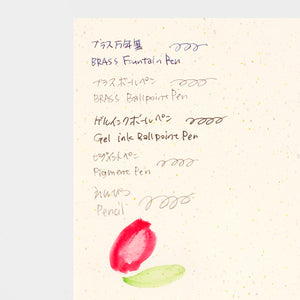 ブラス万年筆
BRASS Fountain Pen
ブラスボールペン
BRASS Ballpoint Pen
ゲルインクボールペン
Gel ink Ballpoint Pen
ピグメントペン
Pigment Pen
えんぴつ
Pencil